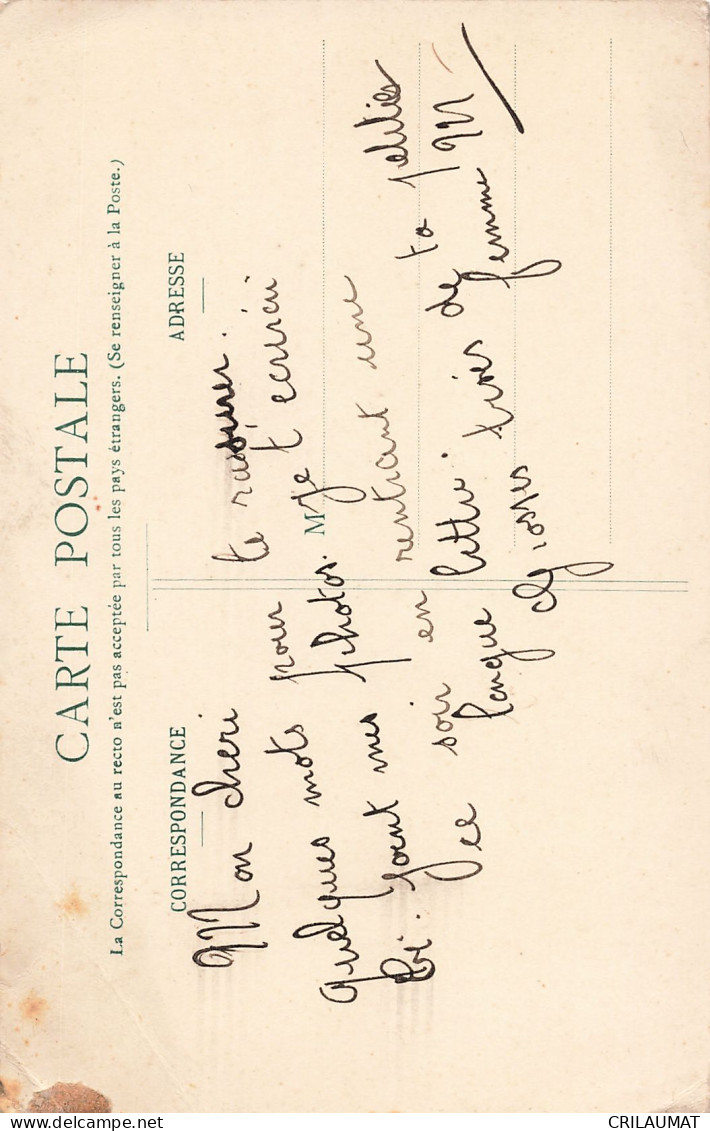 CARTE POSTALE
La Correspondance au recto n'est pas acceptée par tous les pays étrangers. (Se renseigner à la Poste.)
CORRESPONDANCE
ADRESSE
M
Mon cheri
quelques mots pour te rassurer.
ci-joint mes photos. Je t'ecrirai
ce soir en rentrant une
longue lettre. Bises de ta petites
Grosses femme M
CRILAUMAT